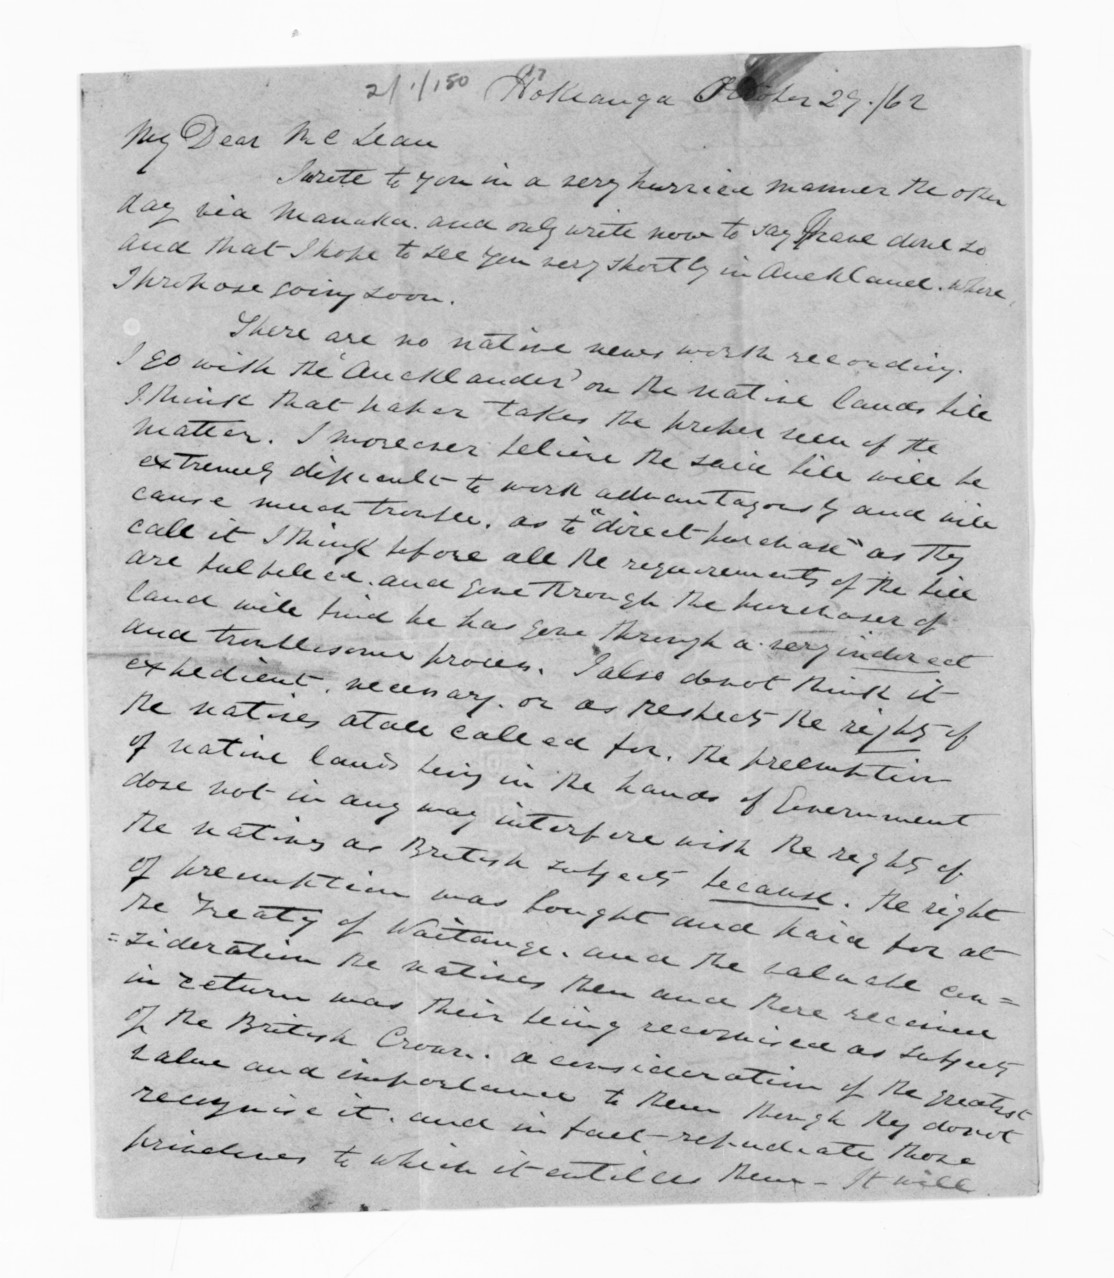 2/1/150
Hokianga October 29./62
My Dear McLean
I wrote to you in a very hurried manner the other
day via Manuka. and only write now to say I have done so
and that I hope to see you very shortly in Auckland. where
I propose going soon.
There are no native news worth recording.
I go with the 'Aucklander' on the native lands bill
I think that paper takes the proper view of the
matter. I moreover believe the said bill will be
extremely difficult to work advantageously and will
cause much trouble. as to "direct purchase" as they
call it I think before all the requirements of the bill
are fulfilled. and gone through the purchaser of
land will find he has gone through a very indirect
and troublesome process. I also do not think it
expedient. necessary. or as respects the rights of
the natives at all called for. the preemption
of native lands being in the hands of Government
dose not in any way interfere with the rights of
the natives as British subjects because. the right
of preemption was bought and paid for at
the Treaty of Waitangi. and the valuable con=
=sideration the natives then and there received
in return was their being recognised as subjects
of the British Crown. a consideration of the greatest
value and importance to them though they do not
recognise it. and in fact repudiate those
priviledges to which it entitles them – It will